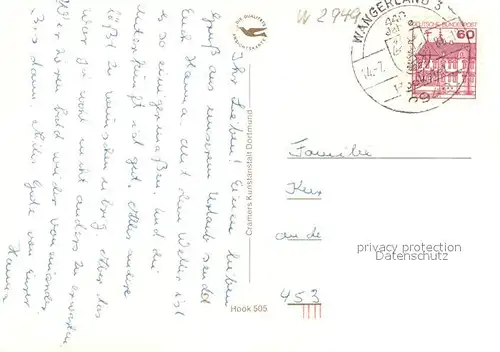 Ihr Lieben! Einen lieben
Gruß aus unserem Urlaub sendet
Euch Hanna. Mit dem Wetter ist
es so einigermaßen. Und die
Unterkunft ist gut. Alles andere
läßt zu wünschen übrig. Aber das
war ja wohl nicht anders zu erwarten.
Wir hören bald wieder voneinander.
Bis dann. Alles Gute von Eurer
Hanna
DIE QUALITÄTS
ANSICHTSKARTE
Cramers Kunstanstalt Dortmund
Hook 505
W 2949
WANGERLAND 3
DEUTSCHE BUNDESPOST
60
Familie
an de
453
privacy protection
watermark